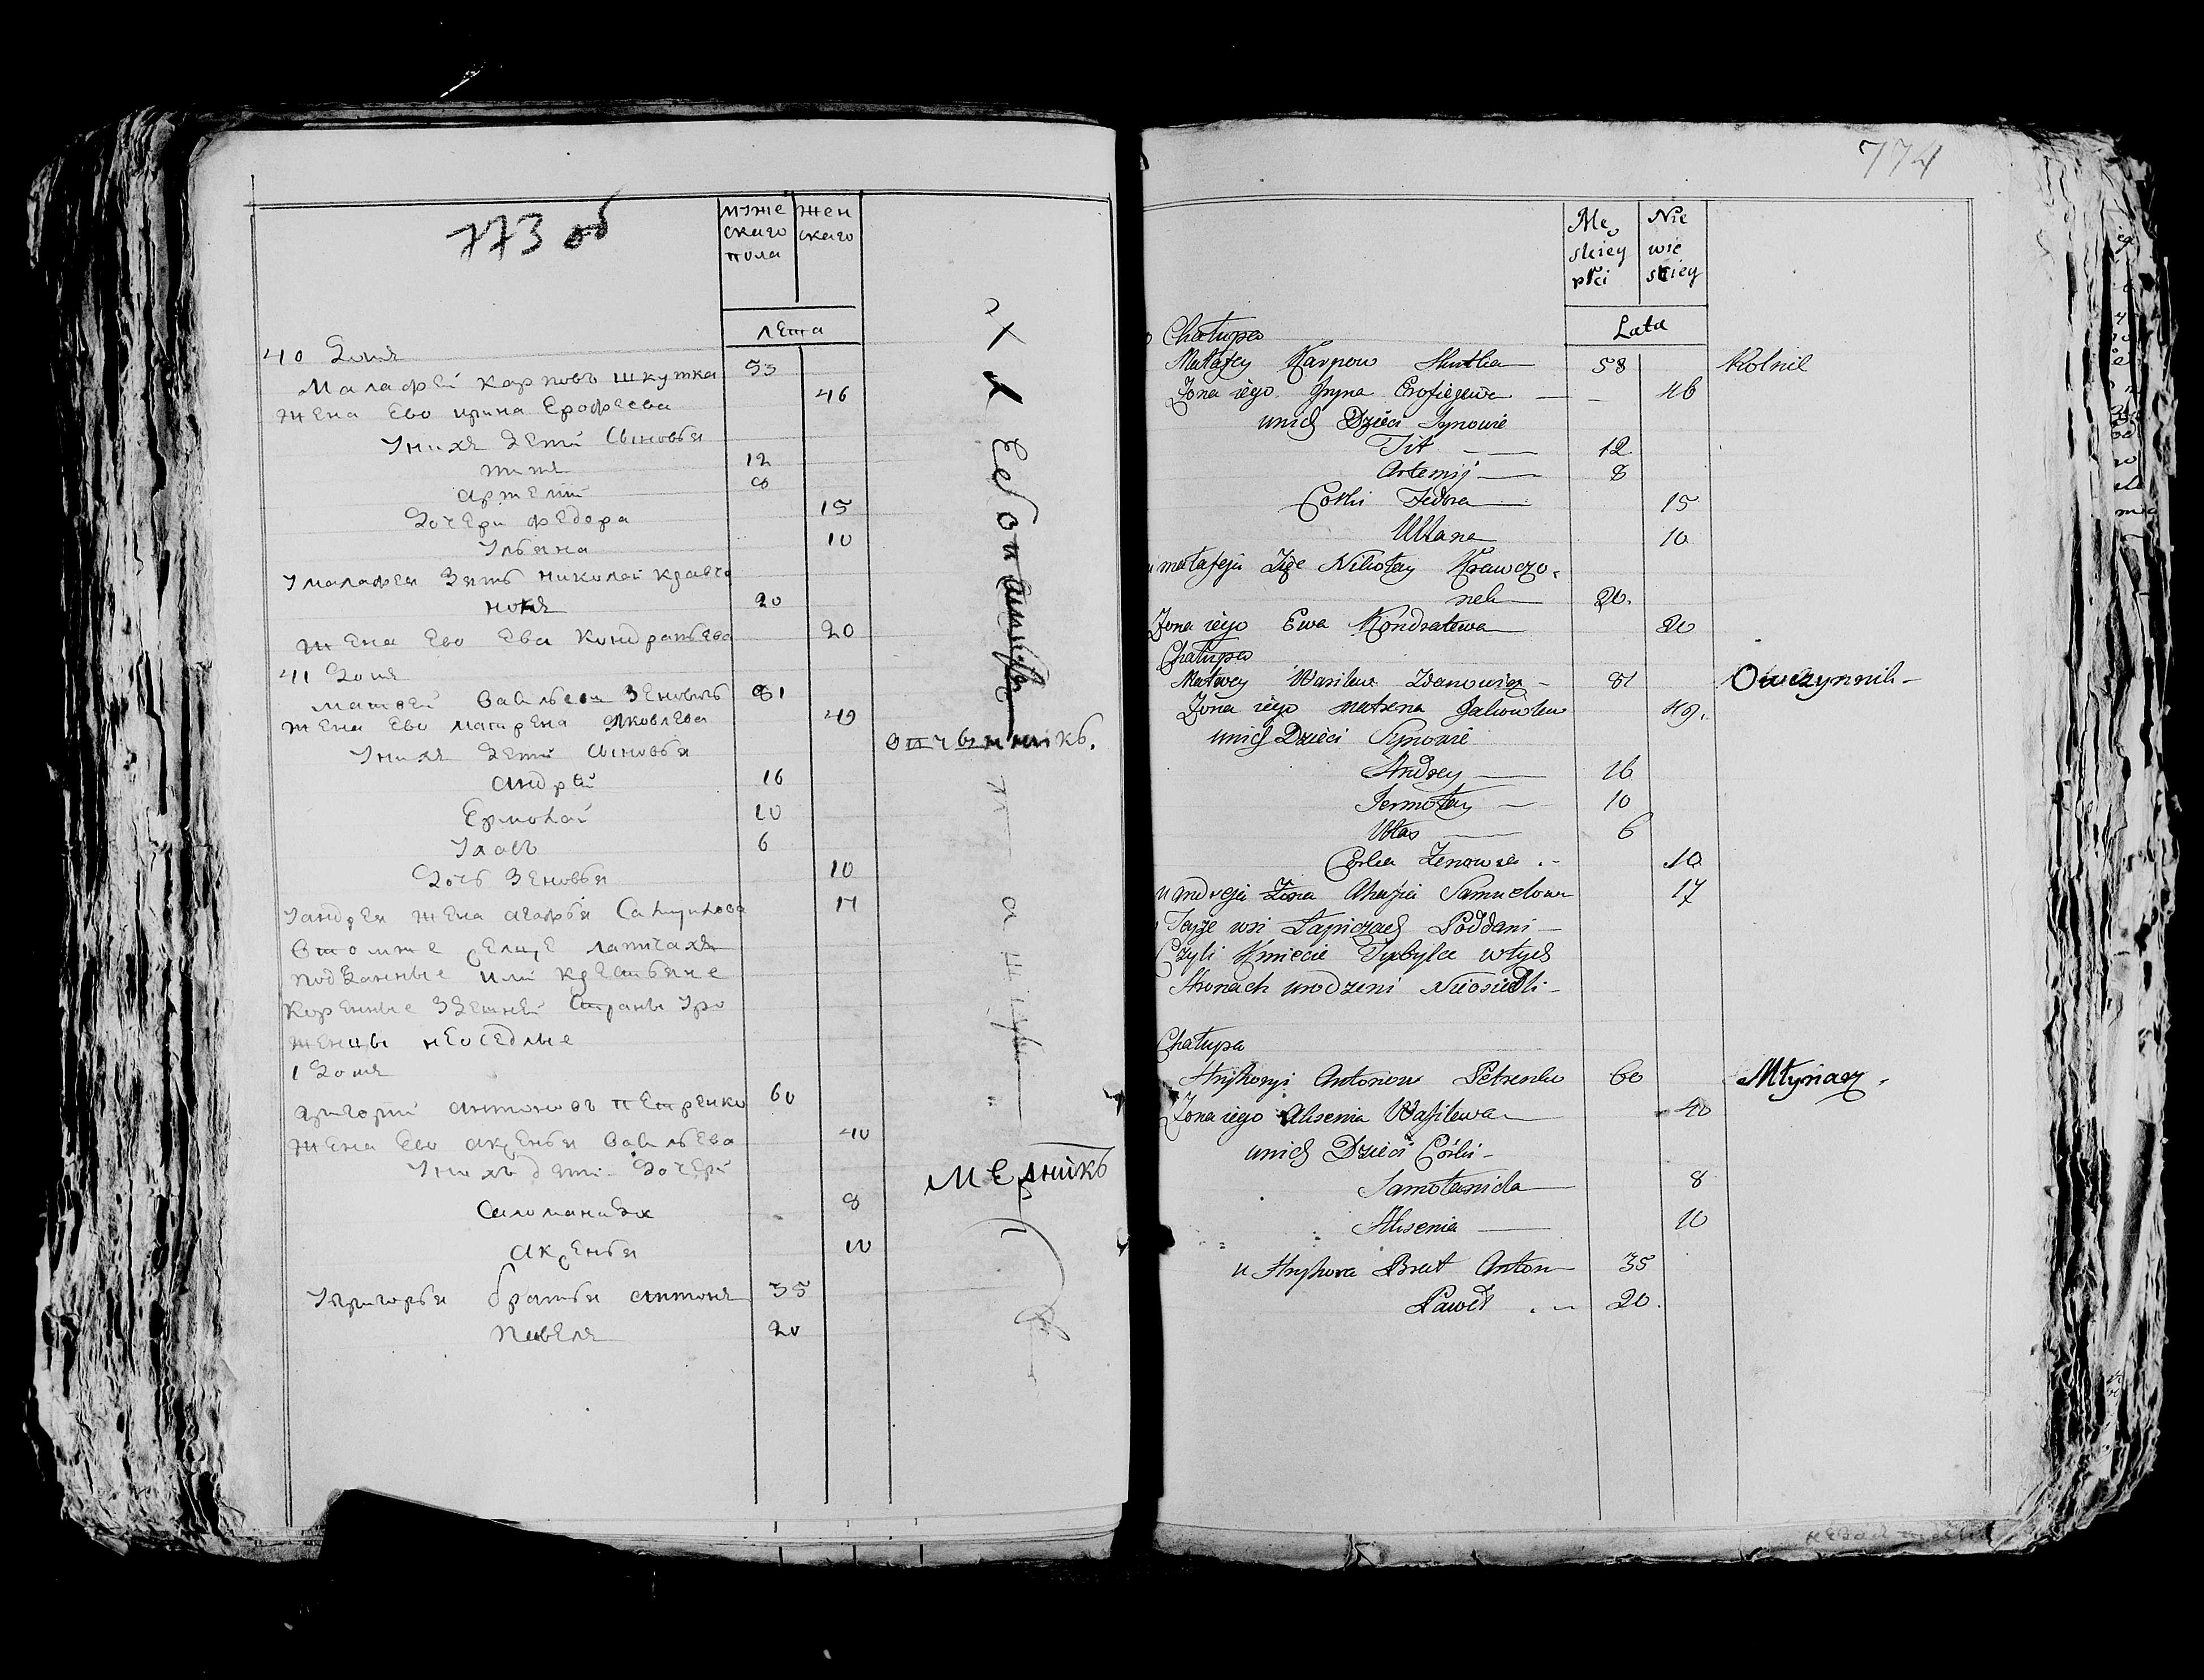 773 об
муже
скаго
пола
жен
скаго
лета
40 Домъ
Малафей Карповъ Шкутка 53
жена Ево ирина Ерофеева 46
Унихъ Дети Сыновья
титъ 12
артемий 8
Дочери федора 15
Ульяна 10
Умалафея Зять николай кравчо
нокъ 20
жена Ево Ева Кондратьева 20
41 Домъ
матвей Васильевъ Зеновичъ 81
жена Ево матрена Яковлева 49
Унихъ Дети Сыновья
андрей 16
Ермолай 10
Улавъ 6
Дочь Зеновья 10
Уандрея жена агафья Самуилова 17
Втомже селце лапичахъ
подданные или крестьяне
Коренные Здешней Страны Уро
женцы неоседлые
1 Домъ
григорий антоновъ петренко 60
жена Ево аксенья Васильева 40
Унихъ дети Дочери
Саломанида 8
аксенья 10
Угригорья братья антонъ 35
павелъ 20
овчинникъ.
мельникъ
774
Mę
skiey
płci
Nie
wie
skiey
Lata
Chałupa
Małafey Karpow Skutka 58 Rolnik
Zona iego Iryna Erofiejewa 46
unich Dzieci Synowie
Tit 12
Artemij 8
Corki Fedora 15
Ullana 10
u małafeja Zięć Nikołay Krawczo-
nek 20.
Zona iego Ewa Kondratewa 20
Chałupa
Matwey Wasilew Zdanowicz 81 Owczynnik
Zona iego Matrena Jakowlewa 49.
unich Dzieci Synowie
Andrey 16
Jermołay 10
Ułas 6
Corka Zenowia 10
u andreja Żona Ahafia Samuelowa 17
Teyże wsi Łapiczach Poddani
Czyli Kmiecie Tybylce wtych
Stronach urodzeni Nieosiedli
Chałupa
Hryhoryi Antonow Petrenko 60 Młynarz.
Zona iego Aksenia Wasilewa 40
unich Dzieci Córki
Samołanida 8
Aksenia 10
u Hryhora Brat Anton 35
Paweł 20.